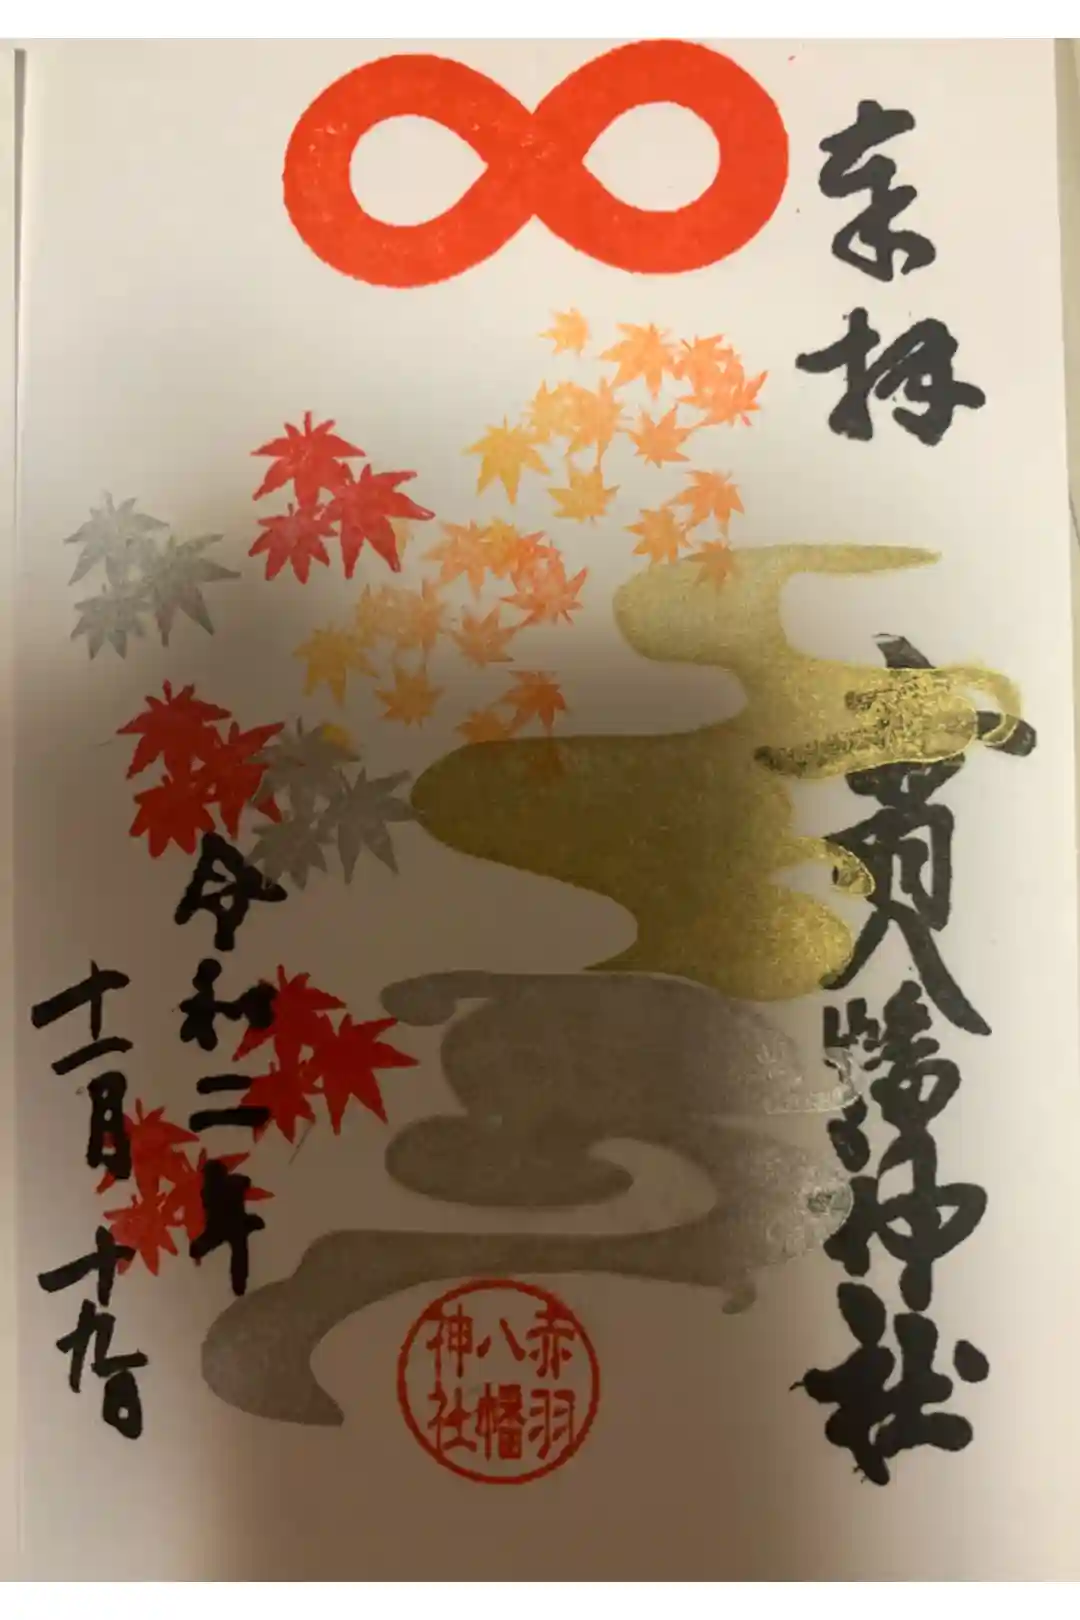 奉拝
赤羽八幡神社
令和二年
十一月十九日
赤羽
八幡
神社